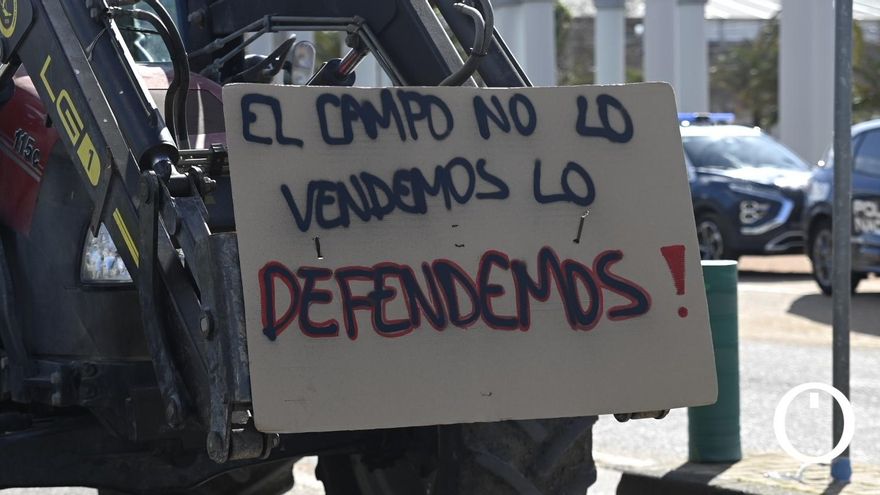 EL CAMPO NO LO
VENDEMOS LO
DEFENDEMOS!
LG 1
115C